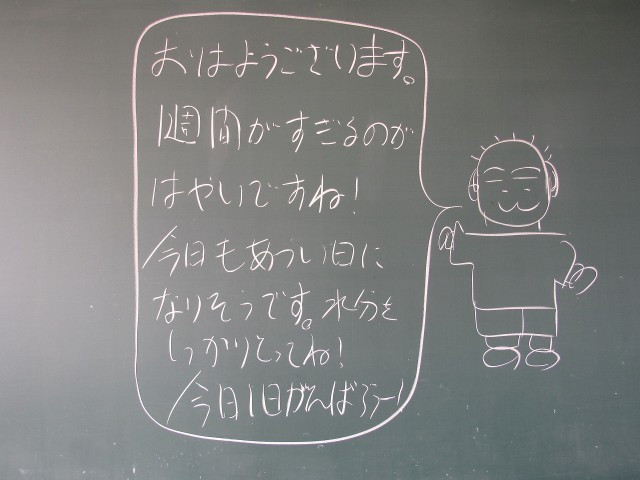 おはようございます。
1週間がすぎるのが
はやいですね!
今日もあつい日に
なりそうです。水分を
しっかりとってね!
今日1日がんばろうー!